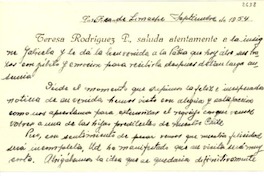 2688
Sn. Fca. de Limache Septiembre de 1954
Teresa Rodríguez P. saluda atentamente a la insig
ne Gabriela y le da la bienvenida a la Patria que hoy abre sus bra
zos con júbilo y emoción para recibirla después de tan larga au
sencia.
Desde el momento que supimos la feliz e inesperada
noticia de su venida hemos visto con alegría y satisfacción
como nos aprestamos para exteriorizar el regocijo con que vemos
volver a una de las hijas predilectas de nuestro Chile
Pero, ese sentimiento de pesar vemos que nuestra felicidad
será incompleta, Ud. ha manifestado que su visita será muy
corta. Abrigábamos la idea que se quedaría definitivamente